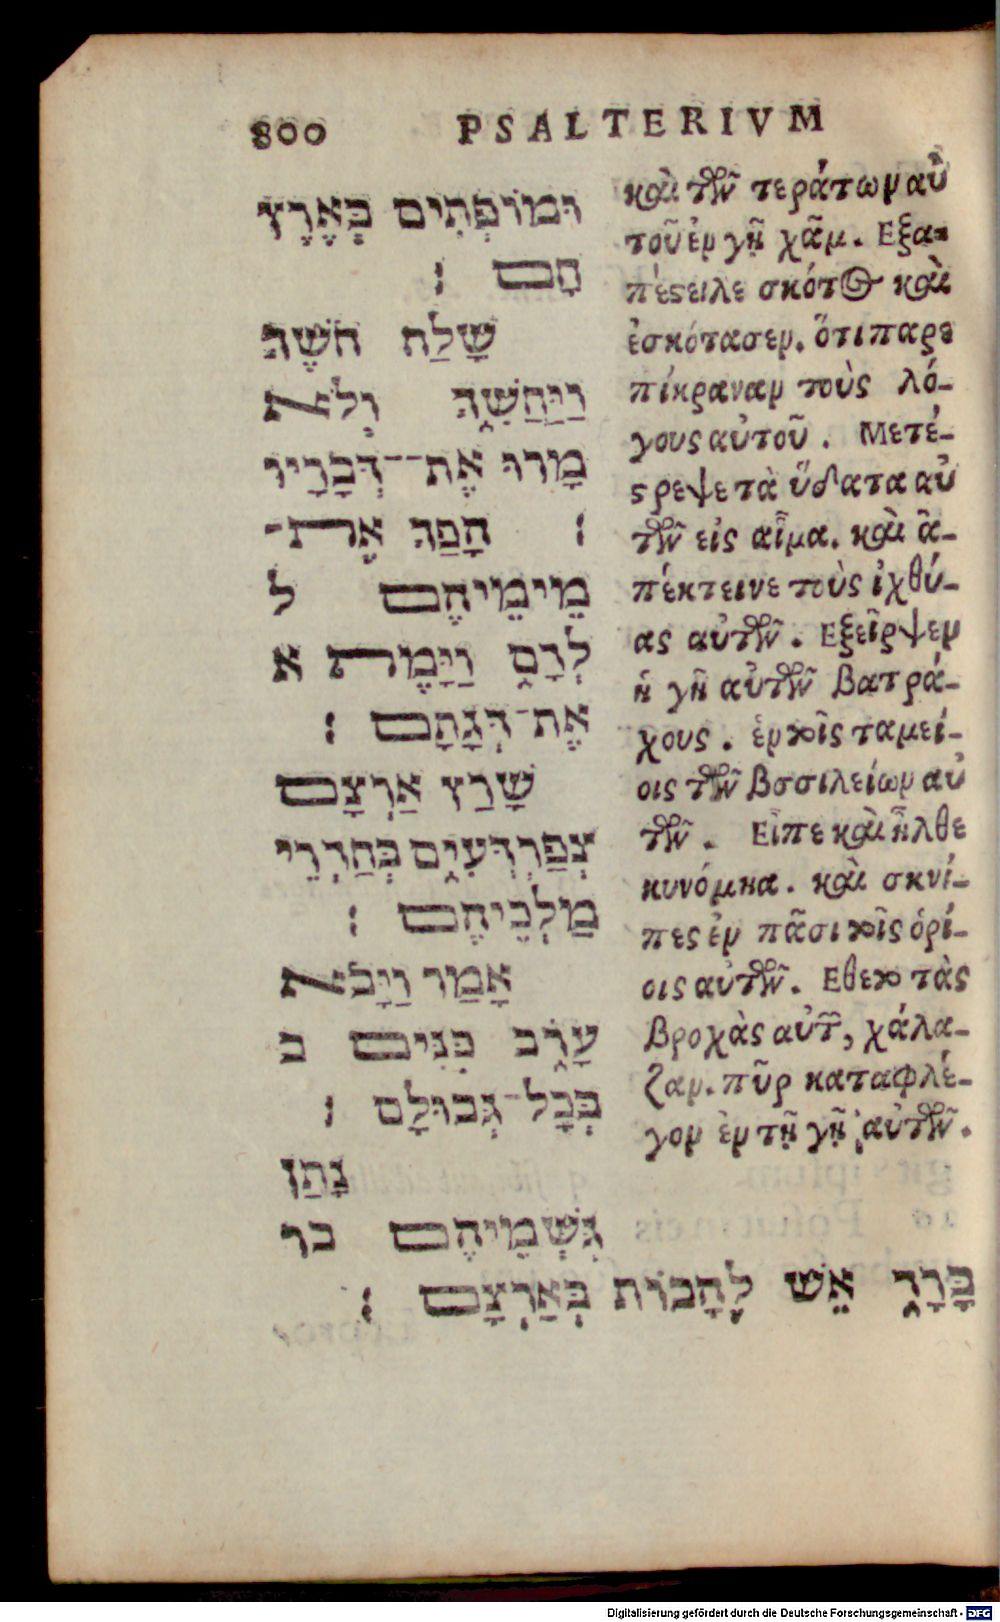 800 PSALTERIVM
וּמוֹפְתִים בְּאֶרֶץ
חָם :
שָׁלַח חֹשֶׁךְ
וַיַּחֲשִׁךְ וְלֹא
מָרוּ אֶת־דְּבָרָיו
: הָפַךְ אֶת־
מֵימֵיהֶם ל
לְדָם וַיָּמֶת א
אֶת־דְּגָתָם :
שָׁרַץ אַרְצָם
צְפַרְדְּעִים בְּחַדְרֵי
מַלְכֵיהֶם :
אָמַר וַיָּבֹא
עָרֹב כִּנִּים ב
בְּכָל־גְּבוּלָם :
נָתַן
גִּשְׁמֵיהֶם בר
בָּרָד אֵשׁ לֶהָבוֹת בְּאַרְצָם :
καὶ τῶν τεράτων αὐ
τοῦ ἐν γῇ χᾶμ. Εξα-
πέςειλε σκότος καὶ
ἐσκότασεν. ὅτι παρε
πίκραναν τοὺς λό-
γους αὐτοῦ. Μετέ-
ςρεψε τὰ ὕδατα αὐ
τῶν εἰς αἷμα. καὶ ἀ-
πέκτεινε τοὺς ἰχθύ-
ας αὐτῶν. Εξεῖρψεν
ἡ γῆ αὐτῶν βατρά-
χους. ἐν τοῖς ταμεί-
οις τῶν βσσιλείων αὐ
τῶν. Εἶπε καὶ ἦλθε
κυνόμηα. καὶ σκνί-
πες ἐν πᾶσι τοῖς ὁρί-
οις αὐτῶν. Εθετο τὰς
βροχὰς αὐτῶν, χάλα-
ζαν. πῦρ καταφλέ-
γον ἐν τῇ γῇ αὐτῶν.
Digitalisierung gefördert durch die Deutsche Forschungsgemeinschaft - DFG